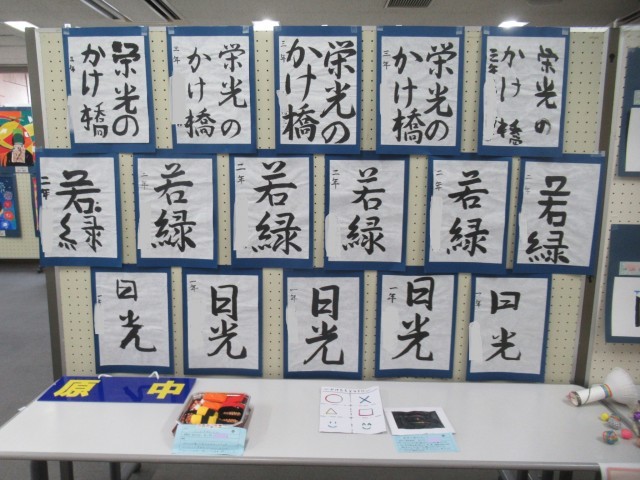 栄光の
かけ橋
三年
栄光の
かけ橋
三年
栄光の
かけ橋
三年
栄光の
かけ橋
三年
栄光の
かけ橋
三年
若緑
二年
若緑
二年
若緑
二年
若緑
二年
若緑
二年
若緑
二年
日光
一年
日光
一年
日光
一年
日光
一年
日光
一年
原中